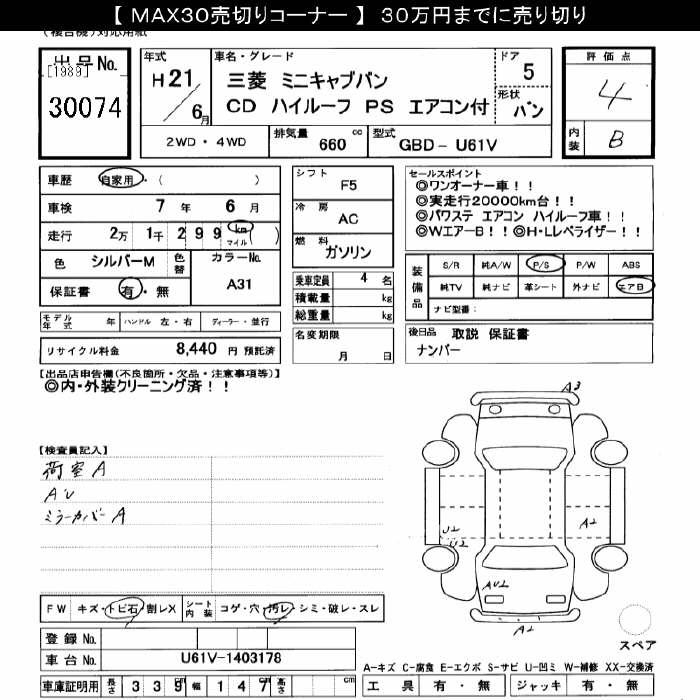 【 MAX30売切りコーナー 】 30万円までに売り切り
(複合機) 対応用紙
出品No. [1989] 30074
年式 H21/6月
車名・グレード 三菱 ミニキャブバン
CD ハイルーフ PS エアコン付
ドア 5
形状 バン
評価点 4
内装 B
2WD・4WD 排気量 660 cc 型式 GBD- U61V
車歴 自家用・( )
車検 7 年 6 月
走行 2万 1千 2 9 9 km マイル ( )
色 シルバーM 色替 カラーNo. A31
保証書 有・無
シフト F5
冷房 AC
燃料 ガソリン
乗車定員 4 名
積載量 kg
総重量 kg
名変期限 月 日
セールスポイント
◎ワンオーナー車!!
◎実走行20000km台!!
◎パワステ エアコン ハイルーフ車!!
◎WエアーB!!◎H・Lレベライザー!!
装備品 S/R 純A/W P/S P/W ABS
純TV 純ナビ 革シート 外ナビ エアB
ナビ型番:
モデル年式 年 ハンドル 左・右 ディーラー・並行
リサイクル料金 8,440 円 預託済
後日品 取説 保証書
ナンバー
【出品店申告欄(不良箇所・欠品・注意事項等)】
◎内・外装クリーニング済!!
【検査員記入】
荷室 A
AU
ミラーカバー A
A3
U2
U2
A2
AU2
A2
スペア
FW キズ・トビ石・割レX シート内装 コゲ・穴・汚レ・シミ・破レ・スレ
登録 No.
車台 No. U61V-1403178
車庫証明用 長さ 3 3 9 cm 幅 1 4 7 cm 高さ cm
A-キズ C-腐食 E-エクボ S-サビ U-凹ミ W-補修 XX-交換済
工具 有・無 ジャッキ 有・無